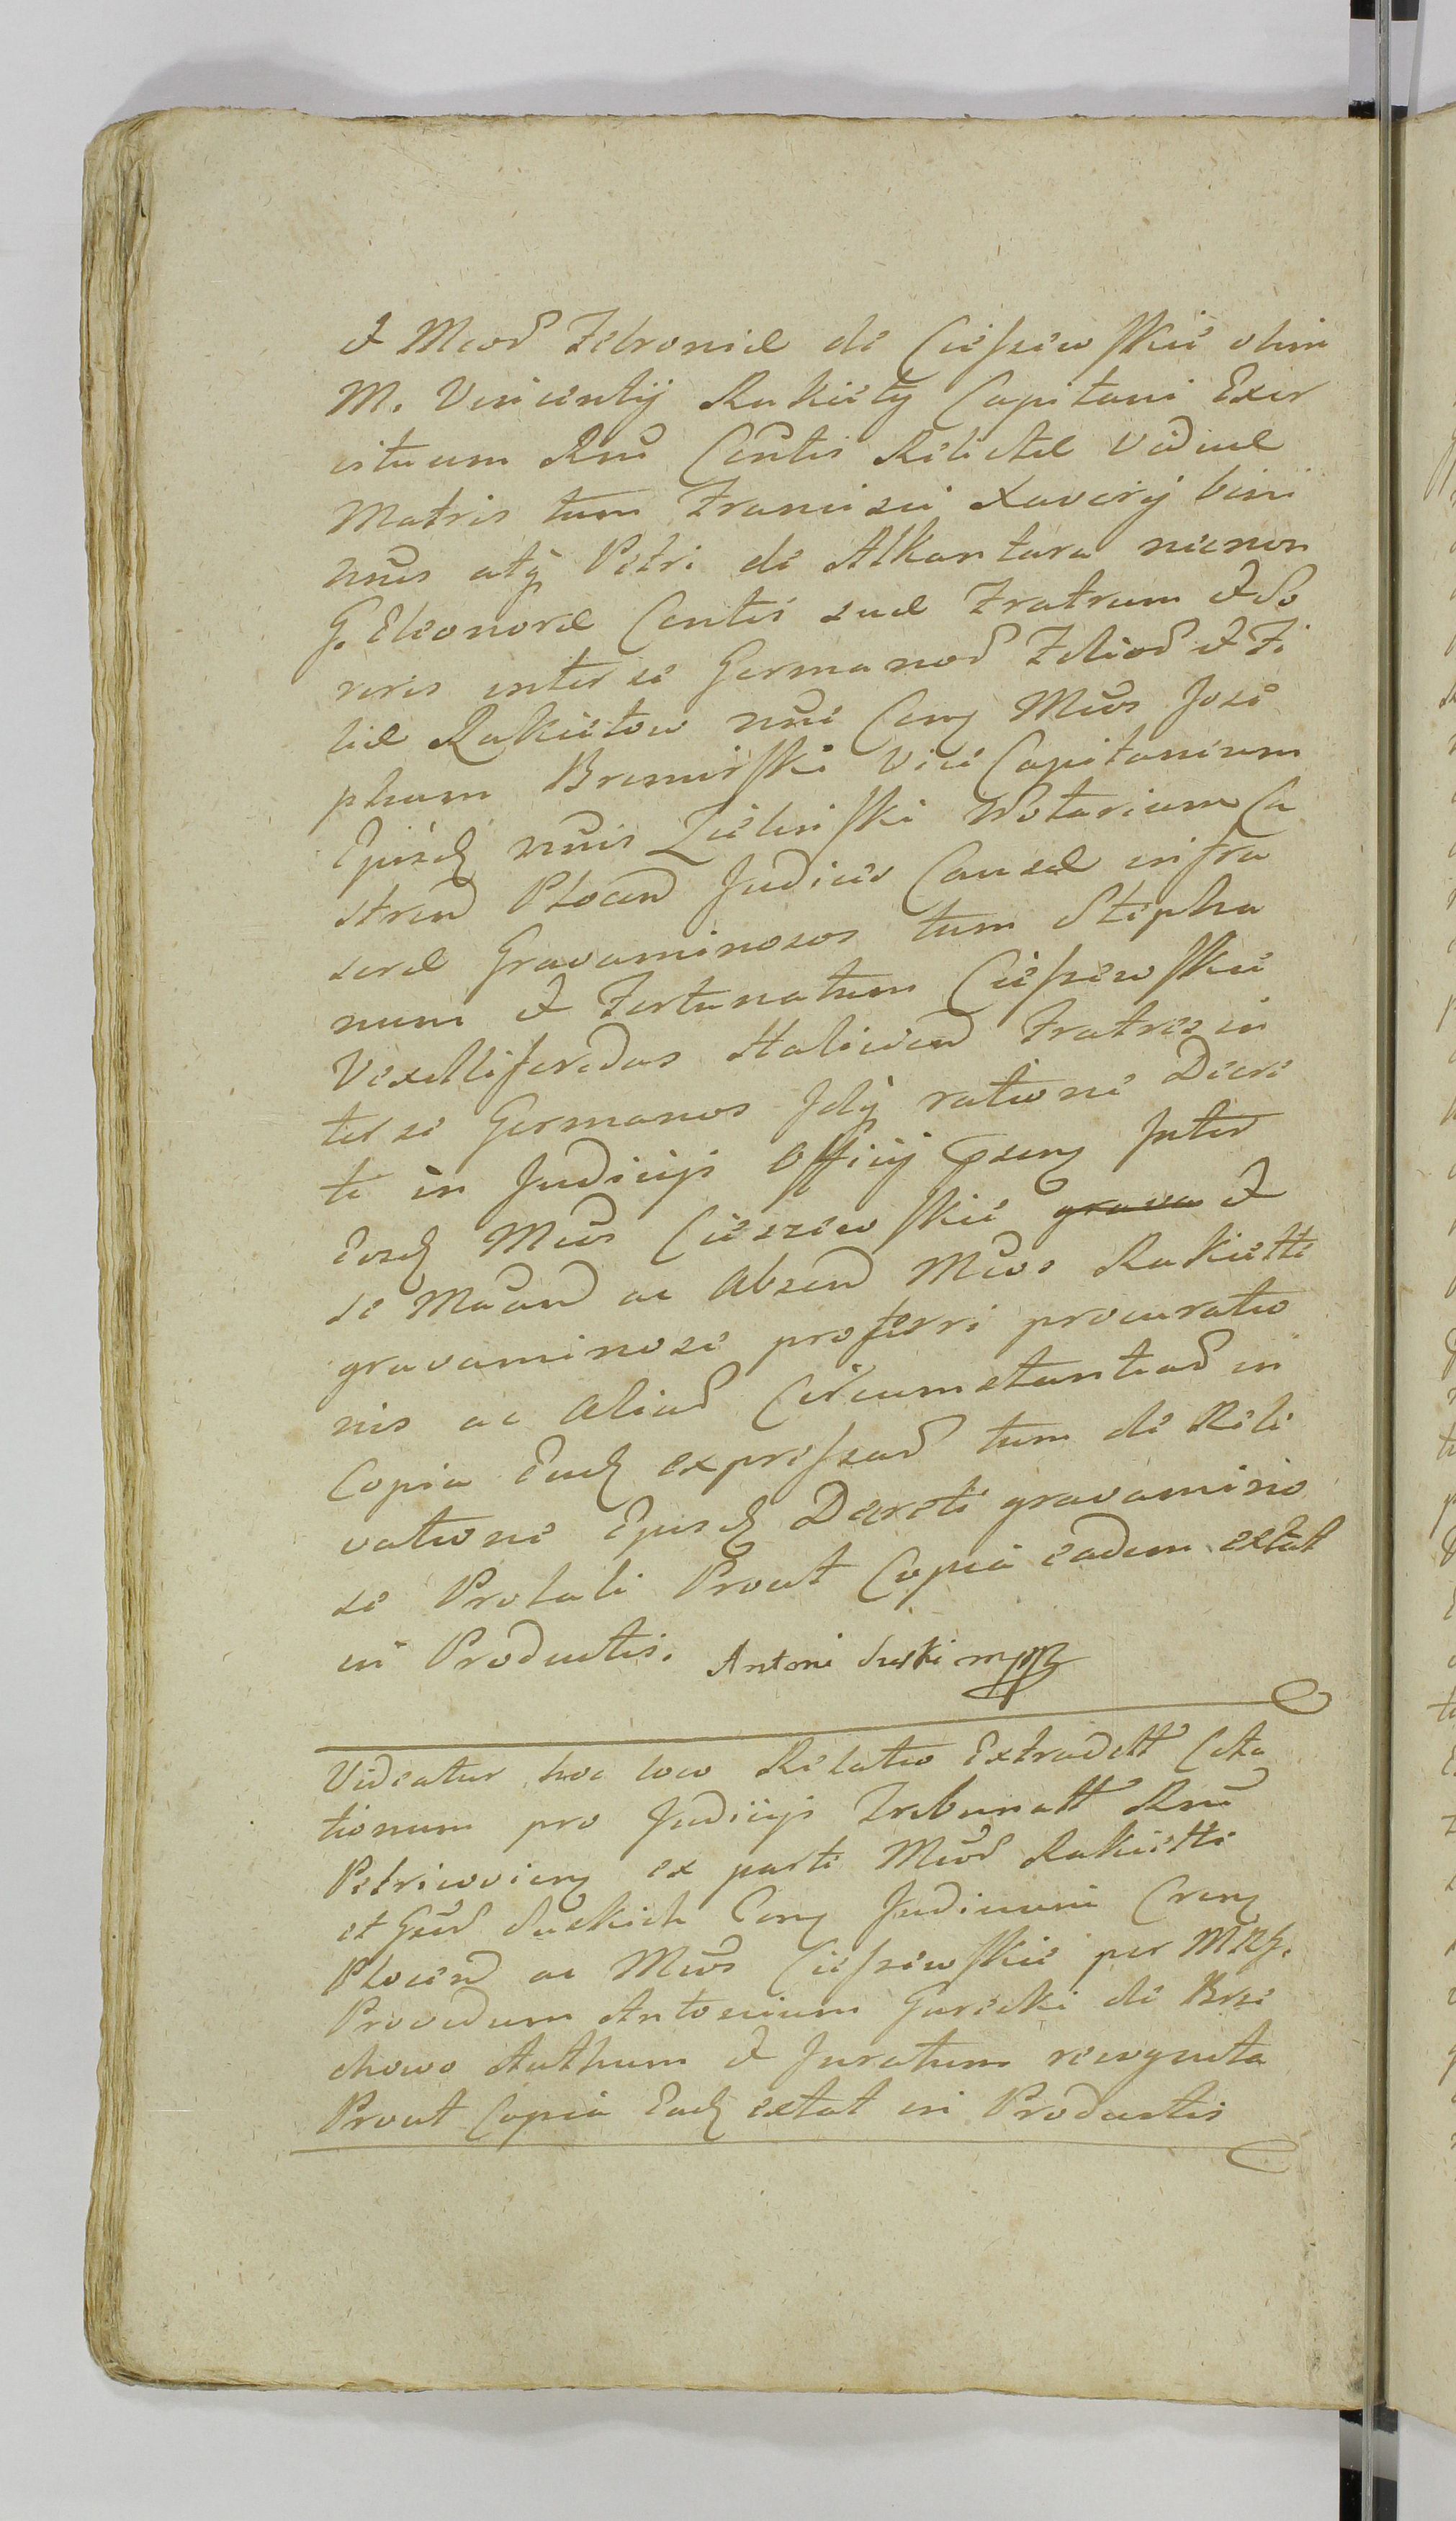 & Mcor Febronie de Cieszewskie olim
M. Vincentÿ Rakiety Capitani Exer
cituum Rni Contis Relictae Viduae
Matris tum Francisci Xaverÿ bini
nnis atq Petri de Alkantara necnon
G. Eleonorae Contis suae Fratrum & So
roris inter se Germanor Filior & Fi
liae Rakietow nni Cong Mcos Jose
phum Bromirski Vice Capitaneum
Ejusd nnis Zielinski Notarium Ca
stren Plocen Judices Causae infra
scrae Gravaminosos tum Stepha
num & Fortunatum Cieszewskie
Vexilliferidas Halicien Fratres in
ter se Germanos Idq ratione Decre
ti in Judicijs Officÿ pseng Inter
Eosd Mcos Cieszewskie grava &
se Mauno ac Absen Mcos Rakietti
gravaminose proferri procuratio
nis ac aliar Circumstantiar in
Copia Ead expressar tum de Rele
vatione Ejusd Decreti gravamino
se Prolati Prout Copia eadem extat
in Productis. Antoni Suski mpp
Videatur hoc loco Relatio Extradett Cita
tionum pro Judicijs Tribunatt Rni
Petricovieng ex parte Mcor Rakietti
et Gsor Suskich Cong Judicium Creng
Plocen ac Mcos Cieszewskie per MRG.
Providum Antonium Gurecki de Brze
chowo Authum & Juratum recognita
Prout Copia Ead extat in Productis